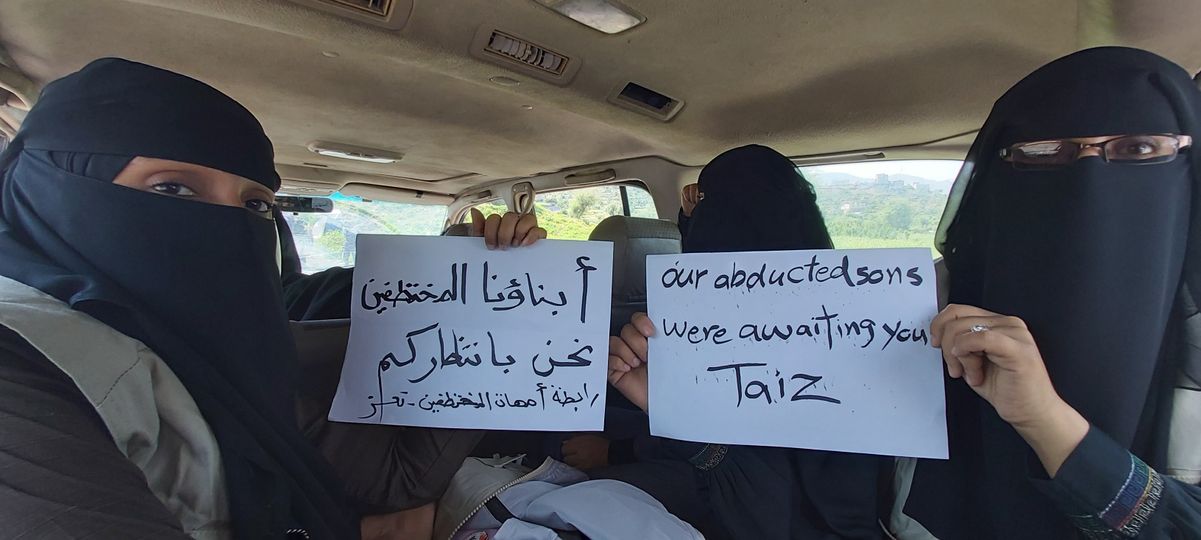 أبناؤنا المختطفين
نحن بانتظاركم
رابطة أمهات المختطفين - تعز
our abducted sons
were awaiting you
Taiz